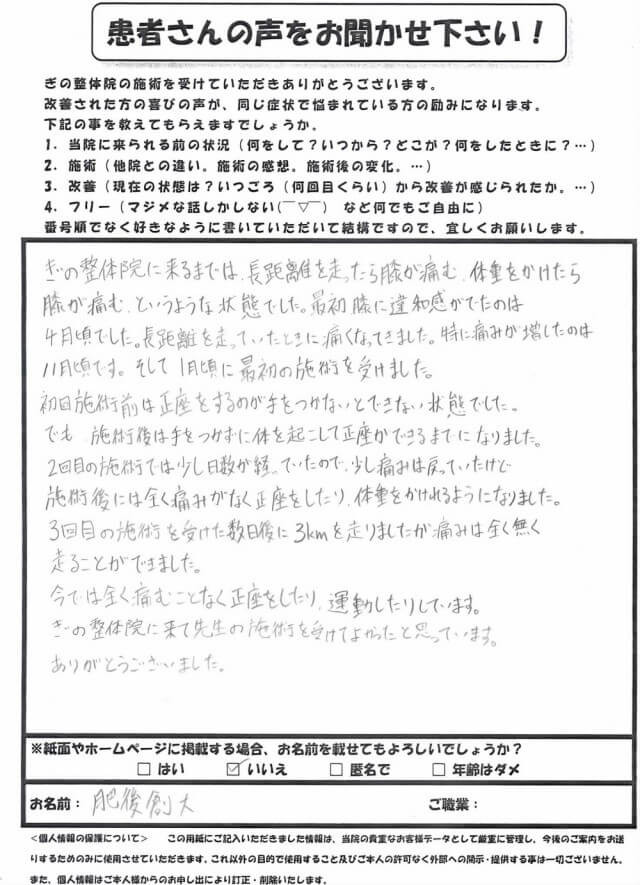 患者さんの声をお聞かせ下さい！
ぎの整体院の施術を受けていただきありがとうございます。
改善された方の喜びの声が、同じ症状で悩まれている方の励みになります。
下記の事を教えてもらえますでしょうか。
1．当院に来られる前の状況（何をして？いつから？どこが？何をしたときに？…）
2．施術（他院との違い。施術の感想。施術後の変化。…）
3．改善（現在の状態は？いつごろ（何回目くらい）から改善が感じられたか。…）
4．フリー（マジメな話しかしない(￣▽￣)　など何でもご自由に）
番号順でなく好きなように書いていただいて結構ですので、宜しくお願いします。
ぎの整体院に来るまでは、長距離を走ったら膝が痛む、体重をかけたら
膝が痛む、というような状態でした。最初膝に違和感がでたのは
4月頃でした。長距離を走っていたときに痛くなってきました。特に痛みが増したのは
11月頃です。そして1月頃に最初の施術を受けました。
初回施術前は正座をするのが手をつかないとできない状態でした。
でも、施術後は手をつかずに体を起こして正座ができるまでになりました。
2回目の施術では少し日数が経っていたので、少し痛みは戻っていたけど
施術後には全く痛みがなく正座をしたり、体重をかけれるようになりました。
3回目の施術を受けた数日後に3kmを走りましたが痛みは全く無く
走ることができました。
今では全く痛むことなく正座をしたり、運動したりしています。
ぎの整体院に来て先生の施術を受けてよかったと思っています。
ありがとうございました。
※紙面やホームページに掲載する場合、お名前を載せてもよろしいでしょうか？
□ はい　☑ いいえ　□ 匿名で　□ 年齢はダメ
お名前：肥後創大　ご職業：
＜個人情報の保護について＞　この用紙にご記入いただきました情報は、当院の貴重なお客様データとして厳重に管理し、今後のご案内をお送
りするためのみに使用させていただきます。これ以外の目的で使用すること及びご本人の許可なく外部への開示・提供する事は一切ございません。
また、個人情報はご本人様からのお申し出により訂正・削除いたします。